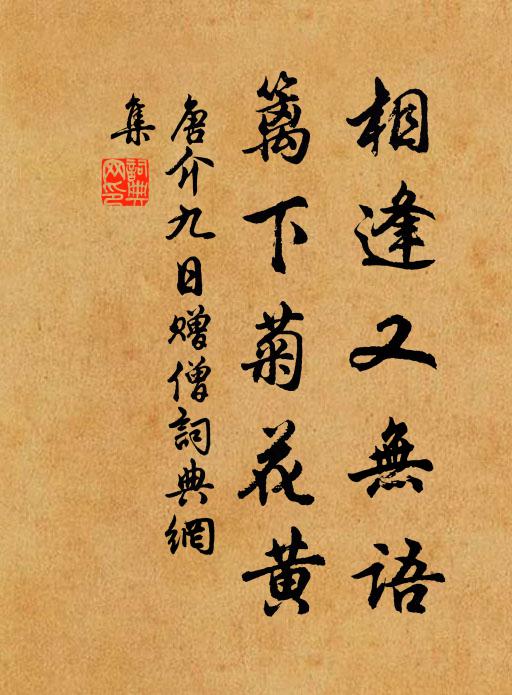 相逢又無語
籬下菊花黄
唐介九日赠僧詞典網
集
詞典網印